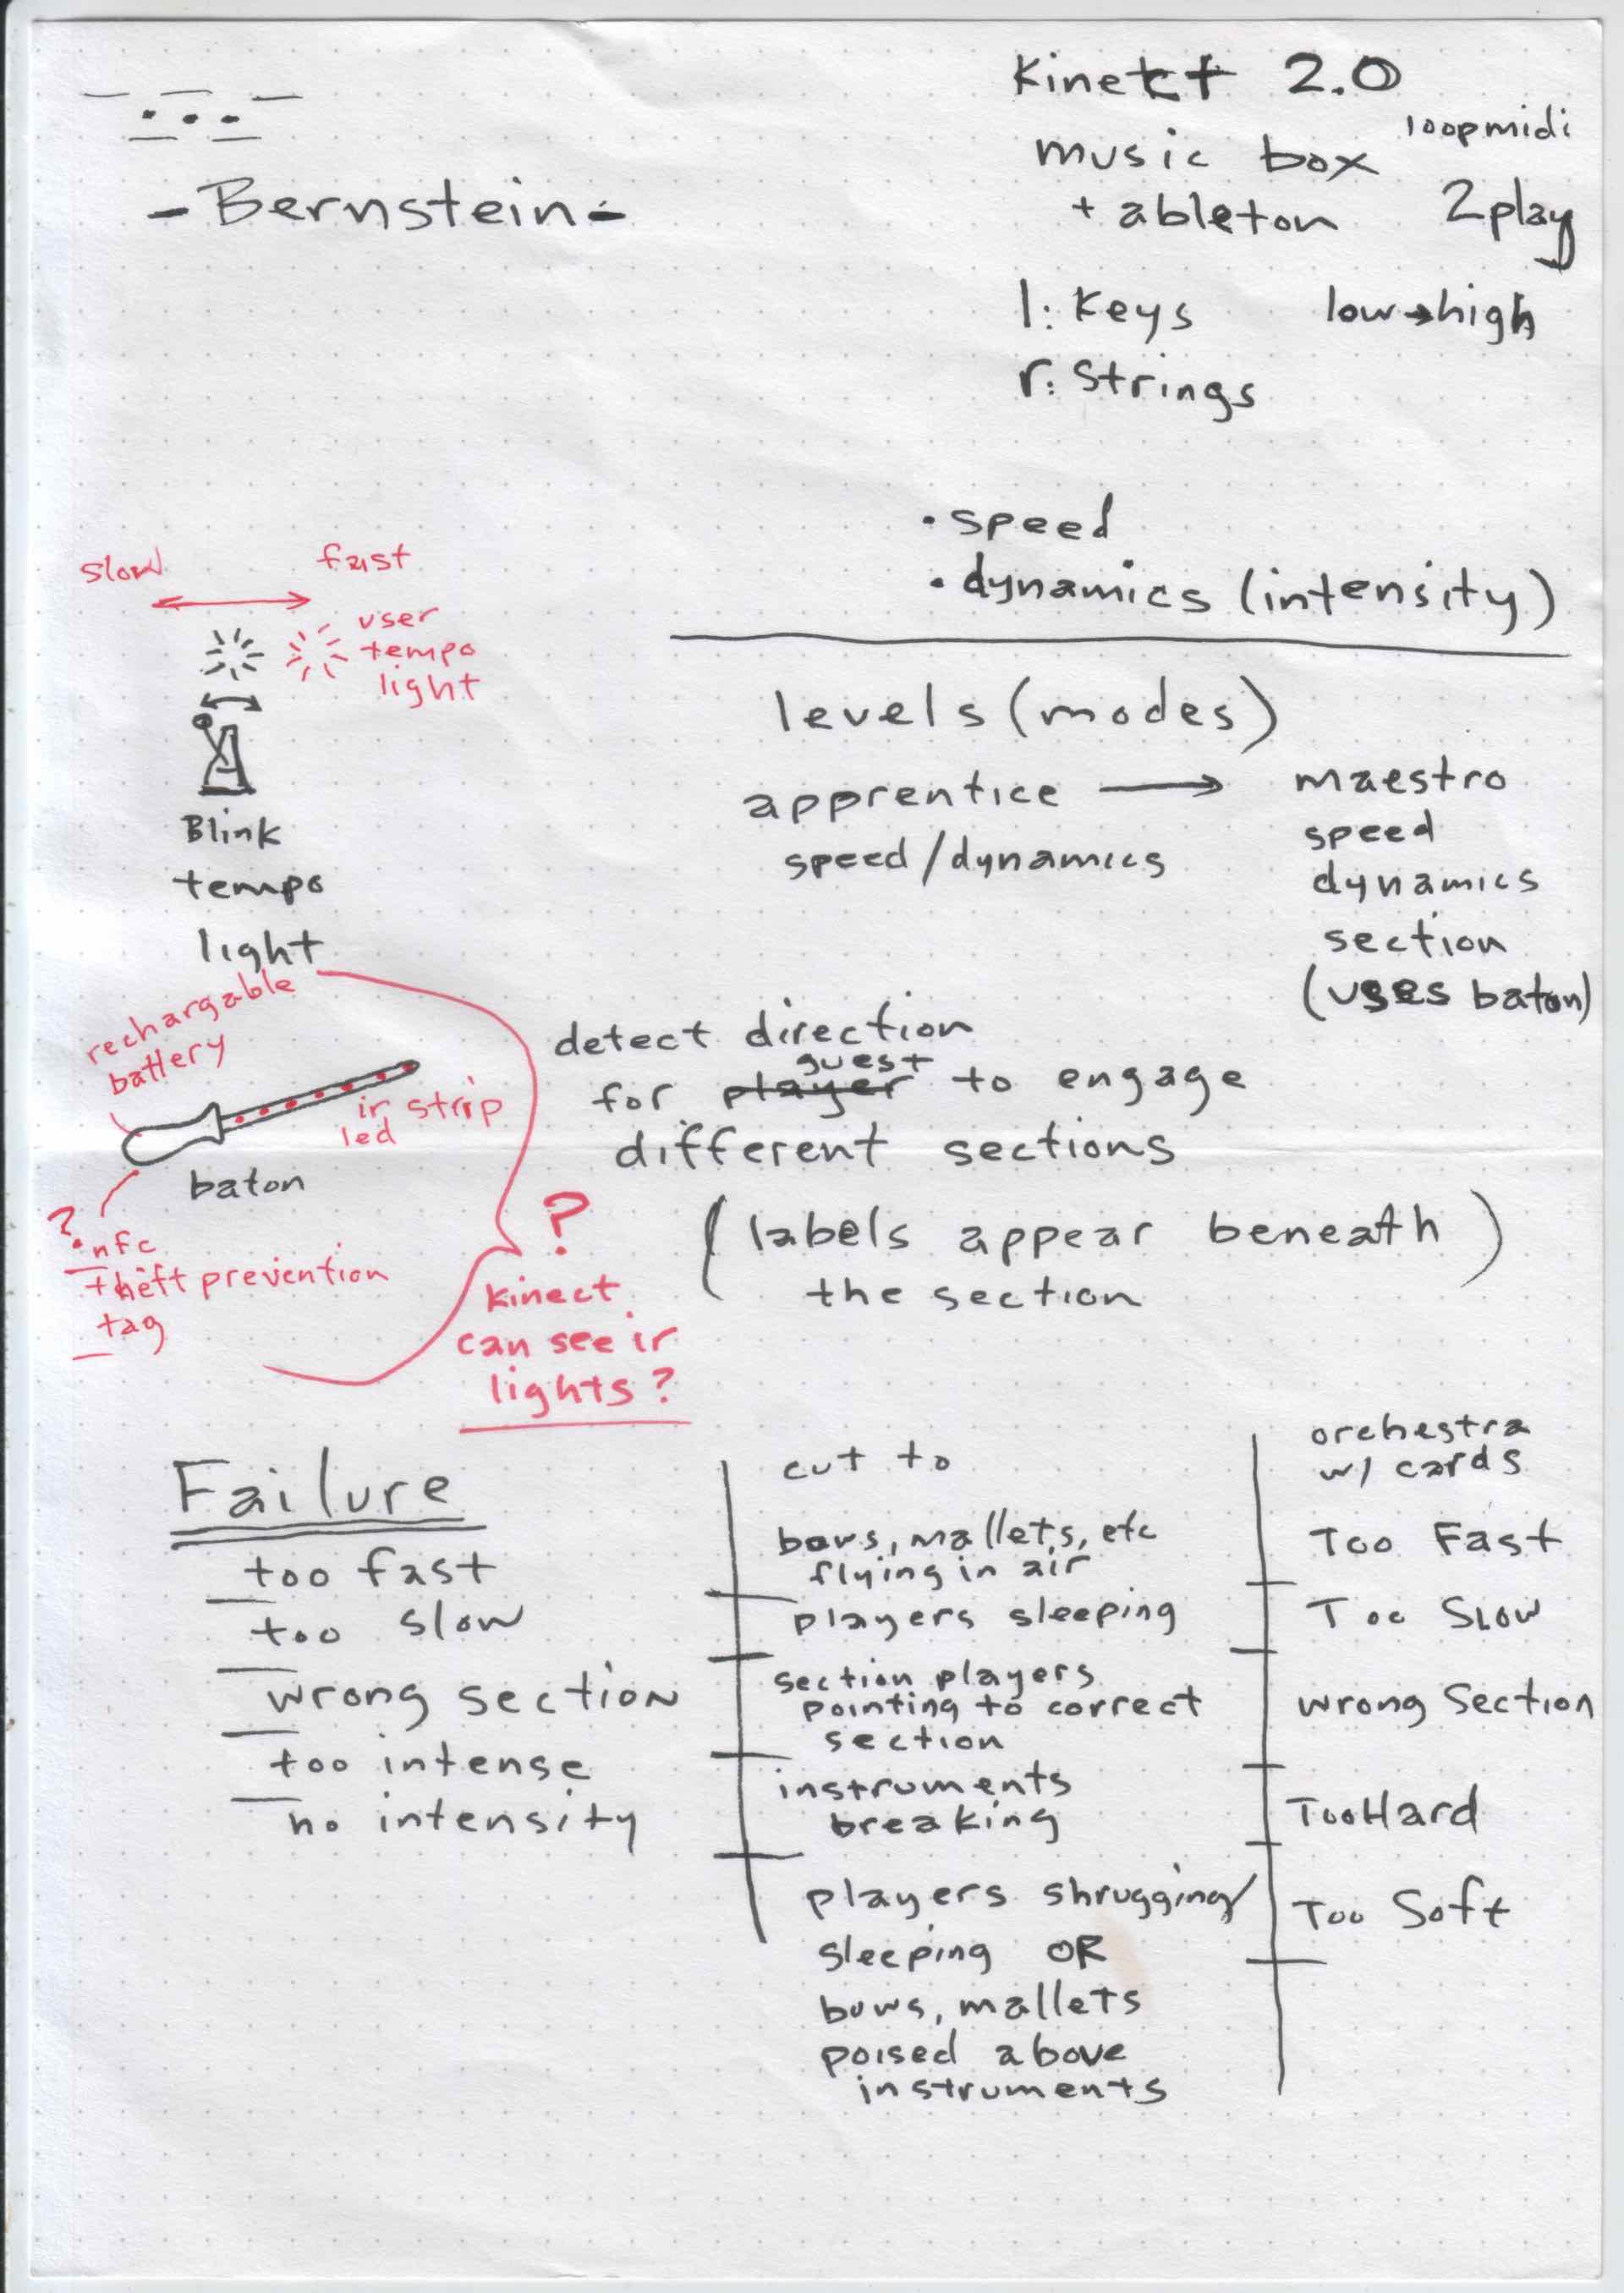 - Bernstein -
Kinect 2.0
loopmidi
music box
+ ableton
2play
l: Keys
low → high
r: Strings
• speed
• dynamics (intensity)
slow
fast
user
tempo
light
Blink
tempo
light
levels (modes)
apprentice → maestro
speed/dynamics
speed
dynamics
section
(uses baton)
rechargable
battery
ir strip
led
baton
?
nfc
theft prevention
tag
detect direction
guest
for player to engage
different sections
(labels appear beneath
the section)
?
kinect
can see ir
lights?
Failure
too fast
too slow
wrong section
too intense
no intensity
cut to
bows, mallets, etc
flying in air
players sleeping
section players
pointing to correct
section
instruments
breaking
players shrugging/
sleeping OR
bows, mallets
poised above
instruments
orchestra
w/ cards
Too Fast
Too Slow
wrong Section
Too Hard
Too Soft